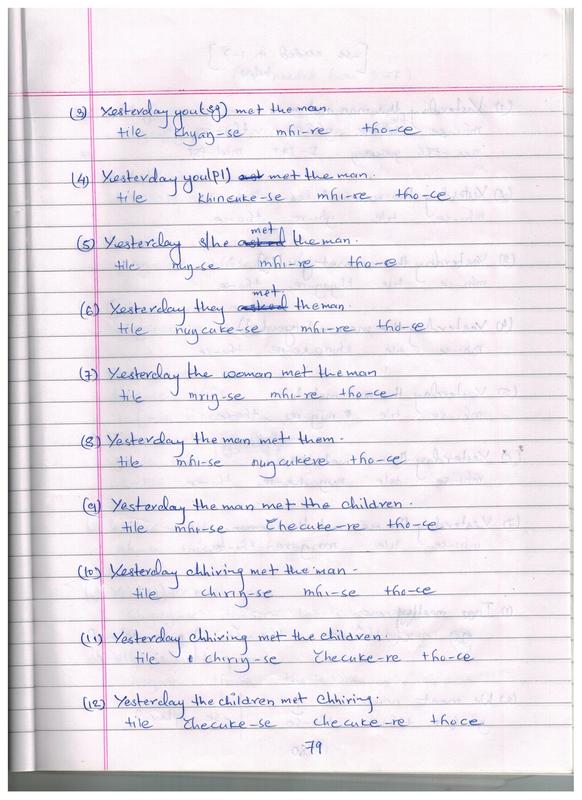 (3) Yesterday you(sg) met the man.
tile khyaŋ-se mhi-re tho-ce
(4) Yesterday you(pl) met the man.
tile khincuke-se mhi-re tho-ce
(5) Yesterday s/he met the man.
tile nuŋ-se mhi-re tho-ce
(6) Yesterday they met the man.
tile nuŋcuke-se mhi-re tho-ce
(7) Yesterday the woman met the man
tile mriŋ-se mhi-re tho-ce
(8) Yesterday the man met them.
tile mhi-se nuŋcukere tho-ce
(9) Yesterday the man met the children.
tile mhi-se checuke-re tho-ce
(10) Yesterday chhiring met the man.
tile chiriŋ-se mhi-se tho-ce
(11) Yesterday chhiring met the children.
tile chiriŋ-se checuke-re tho-ce
(12) Yesterday the children met chhiring.
tile checuke-se checuke-re thoce
79